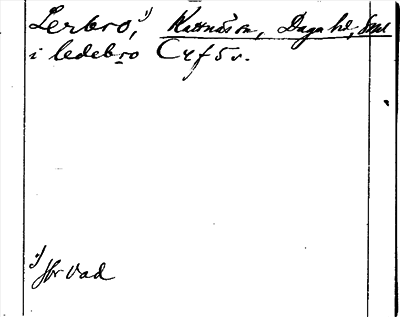 Lerbro, ¹⁾ Kattnäs sn, Daga hd, Sml
i ledebro C 4 f 5 v.
¹⁾ Hr vad